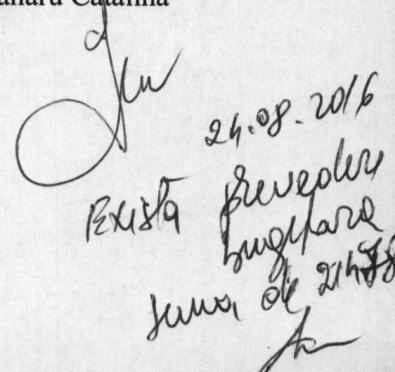 Catalina
24.08.2016
Există prevedere
bugetară
suma de